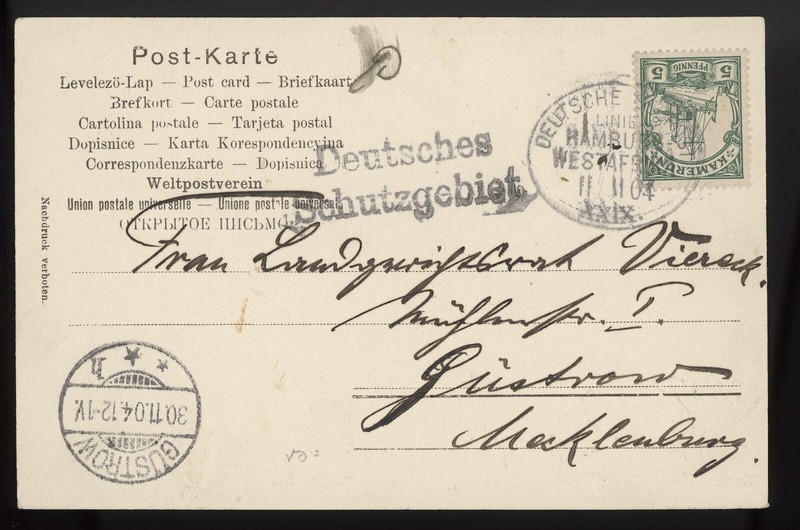 Post-Karte
Levelezö-Lap — Post card — Briefkaart
Brefkort — Carte postale
Cartolina postale — Tarjeta postal
Dopisnice — Karta Korespondencyjna
Correspondenzkarte — Dopisnica
Weltpostverein
Union postale universelle — Unione postale universale
ОТКРЫТОЕ ПИСЬМО
Nachdruck verboten.
Deutsches
Schutzgebiet
5 PFENNIG 5
KAMERUN
DEUTSCHE
LINIE
HAMBU
WESTAFR
11 11 04
XXIX.
Frau Landgerichtsrat Viereck.
Mühlenstr. I.
Güstrow
Mecklenburg.
30.11.04.12-1V.
GÜSTROW